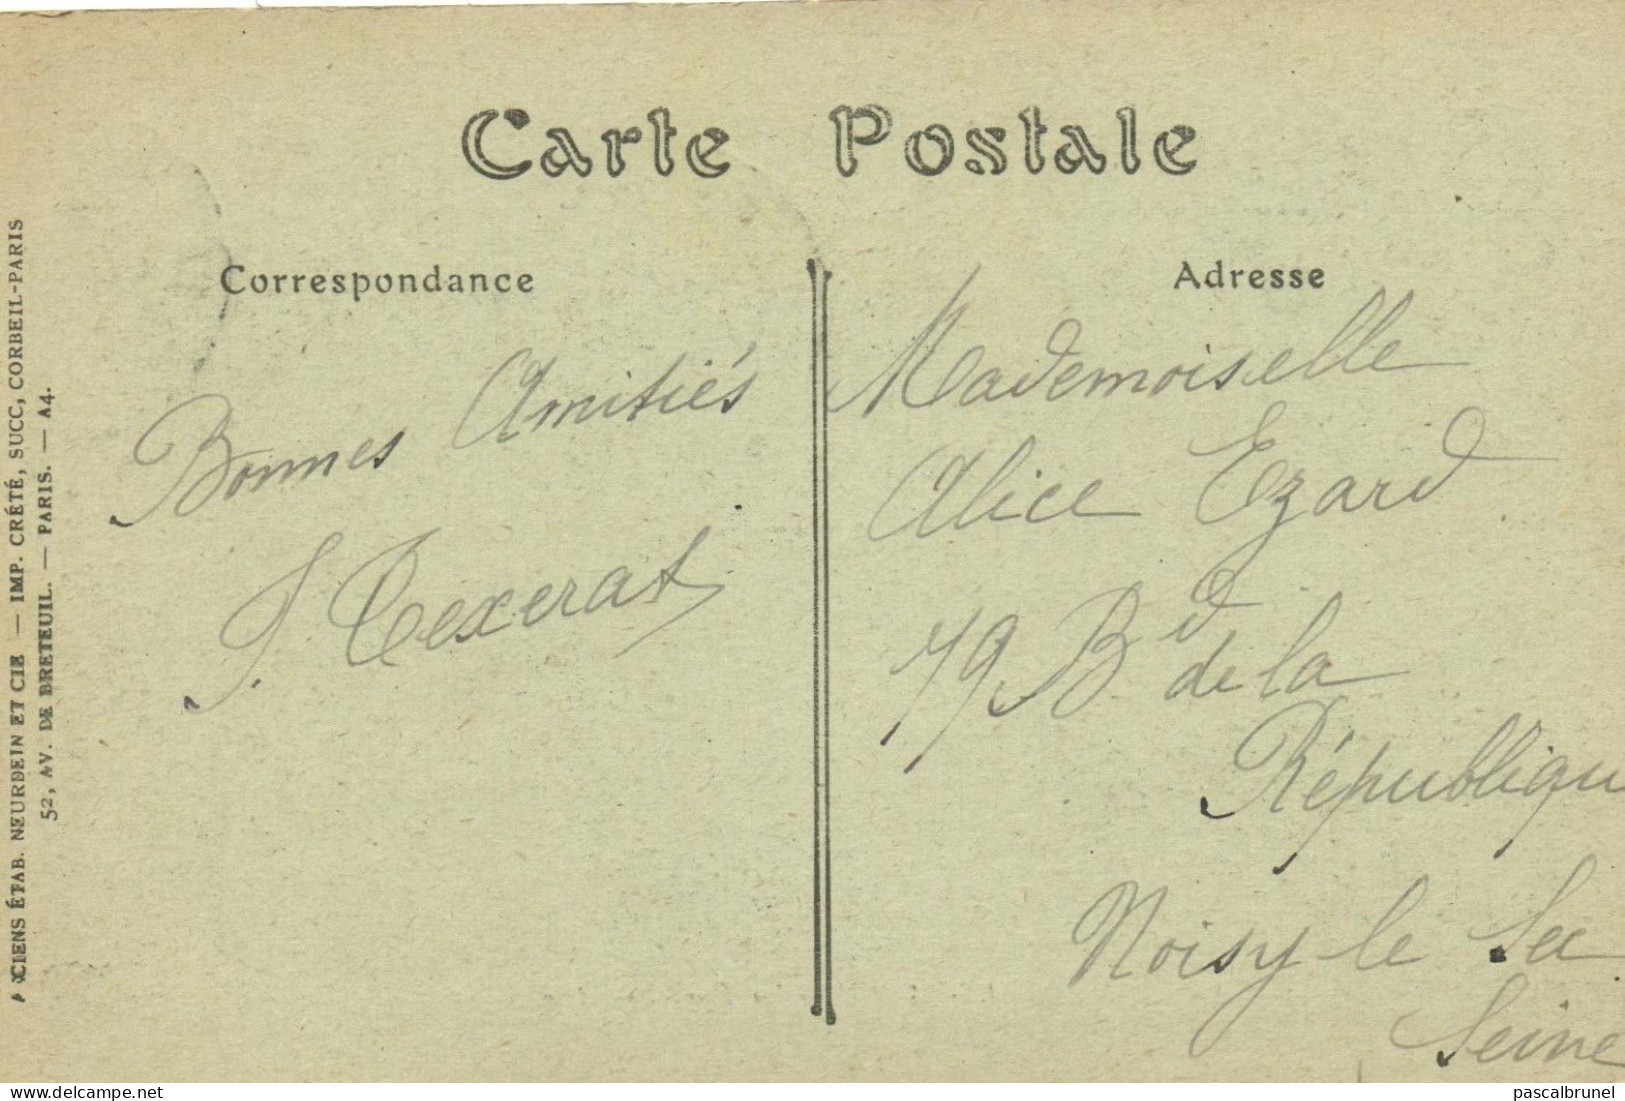 Carte Postale
Correspondance
Bonnes Amitiés
Adresse
Mademoiselle
Alice Ezard
79 Bd de la
Républiqu
Noisy le Sec
Seine
ANCIENS ÉTAB. NEURDEIN ET CIE — IMP. CRÉTÉ, SUCC, CORBEIL-PARIS
52, AV. DE BRETEUIL. — PARIS. — A4.
delcampe.net
pascalbrunel